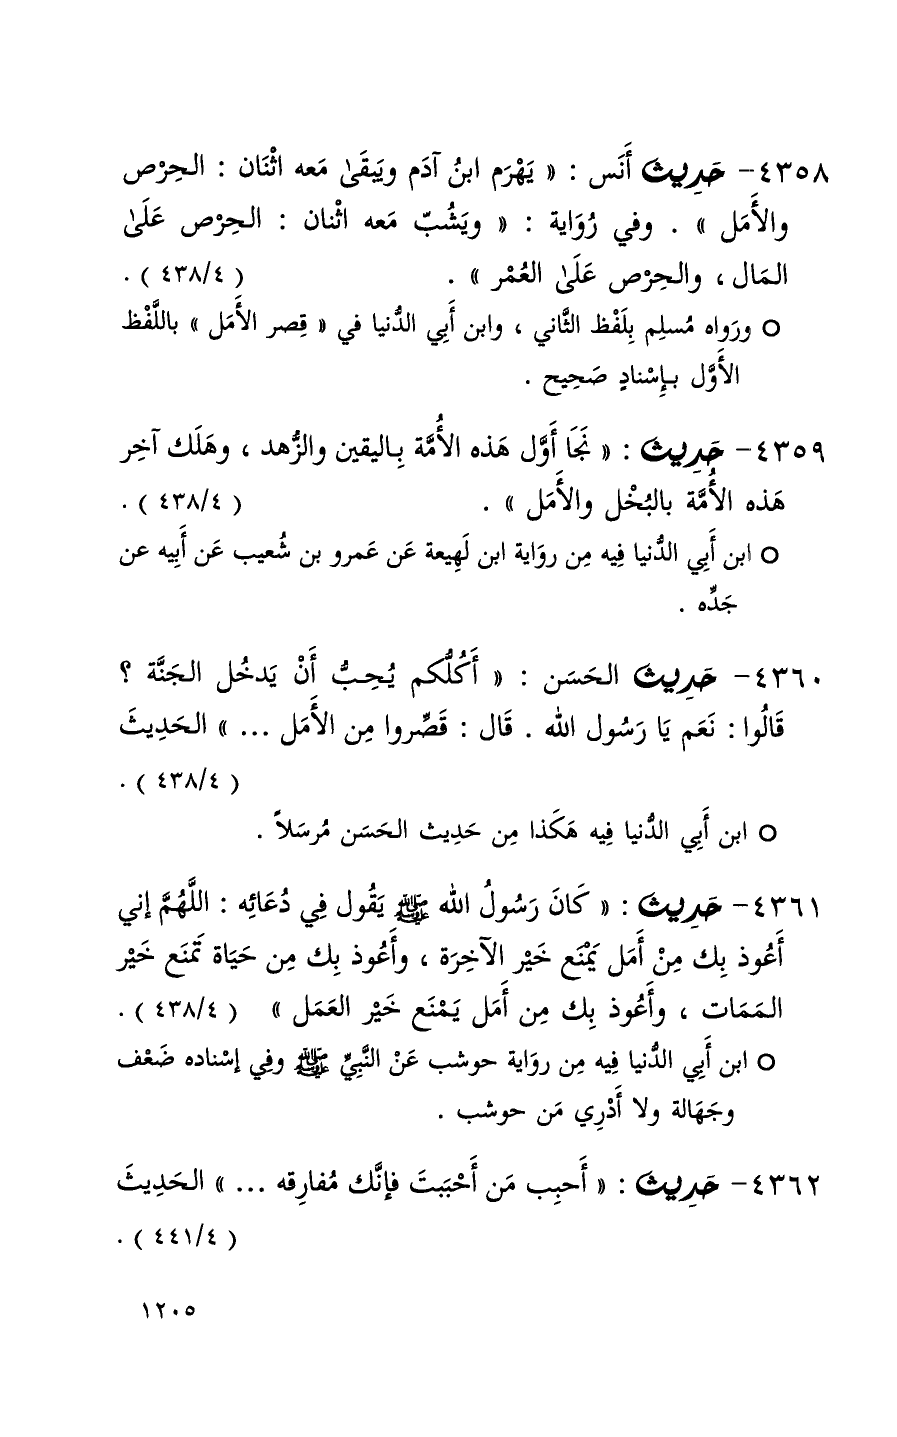 ٤٣٥٨- حَدِيث أَنَس : « يَهْرَم ابنُ آدَم ويَبقَىٰ مَعه اثْنَان : الحِرْص
والأَمَل » . وفي رُوَاية : « ويَشُبّ مَعه اثْنان : الحِرْص عَلَىٰ
المَال ، والحِرْص عَلَىٰ العُمْر » . ( ٤٣٨/٤ ) .
○ ورَواه مُسلِم بِلَفْظ الثَّاني ، وابن أَبِي الدُّنيا في « قِصر الأَمَل » باللَّفْظ
الأَوَّل بإِسْنادٍ صَحِيح .
٤٣٥٩- حَدِيث : « نَجَا أَوَّل هَذه الأُمَّة بِاليقين والزُّهد ، وهَلَك آخِر
هَذه الأُمَّة بالبُخْل والأَمَل » . ( ٤٣٨/٤ ) .
○ ابن أَبِي الدُّنيا فِيه مِن روَاية ابن لَهِيعة عَن عَمرو بن شُعيب عَن أَبِيه عن
جَدِّه .
٤٣٦٠- حَدِيث الحَسَن : « أَكُلُّكم يُحِبُّ أَنْ يَدخُل الجَنَّة ؟
قَالُوا : نَعَم يَا رَسُول الله . قَال : قَصِّروا مِن الأَمَل ... » الحَدِيثَ
( ٤٣٨/٤ ) .
○ ابن أَبِي الدُّنيا فِيه هَكَذا مِن حَدِيث الحَسَن مُرسَلاً .
٤٣٦١- حَدِيث : « كَانَ رَسُولُ الله ﷺ يَقُول فِي دُعَائِه : اللَّهُمَّ إني
أَعُوذ بِك مِنْ أَمَل يَمْنَع خَيْر الآخِرَة ، وأَعُوذ بِك مِن حَيَاة تَمْنَع خَيْر
المَمَات ، وأَعُوذ بِك مِن أَمَل يَمْنَع خَيْر العَمَل » ( ٤٣٨/٤ ) .
○ ابن أَبِي الدُّنيا فِيه مِن روَاية حوشب عَنْ النَّبِيِّ ﷺ وفِي إسْناده ضَعْف
وجَهَالة ولا أَدْرِي مَن حوشب .
٤٣٦٢- حَدِيث : « أَحبِب مَن أَحْبَبتَ فإنَّك مُفارِقه ... » الحَدِيثَ
( ٤٤١/٤ ) .
١٢٠٥